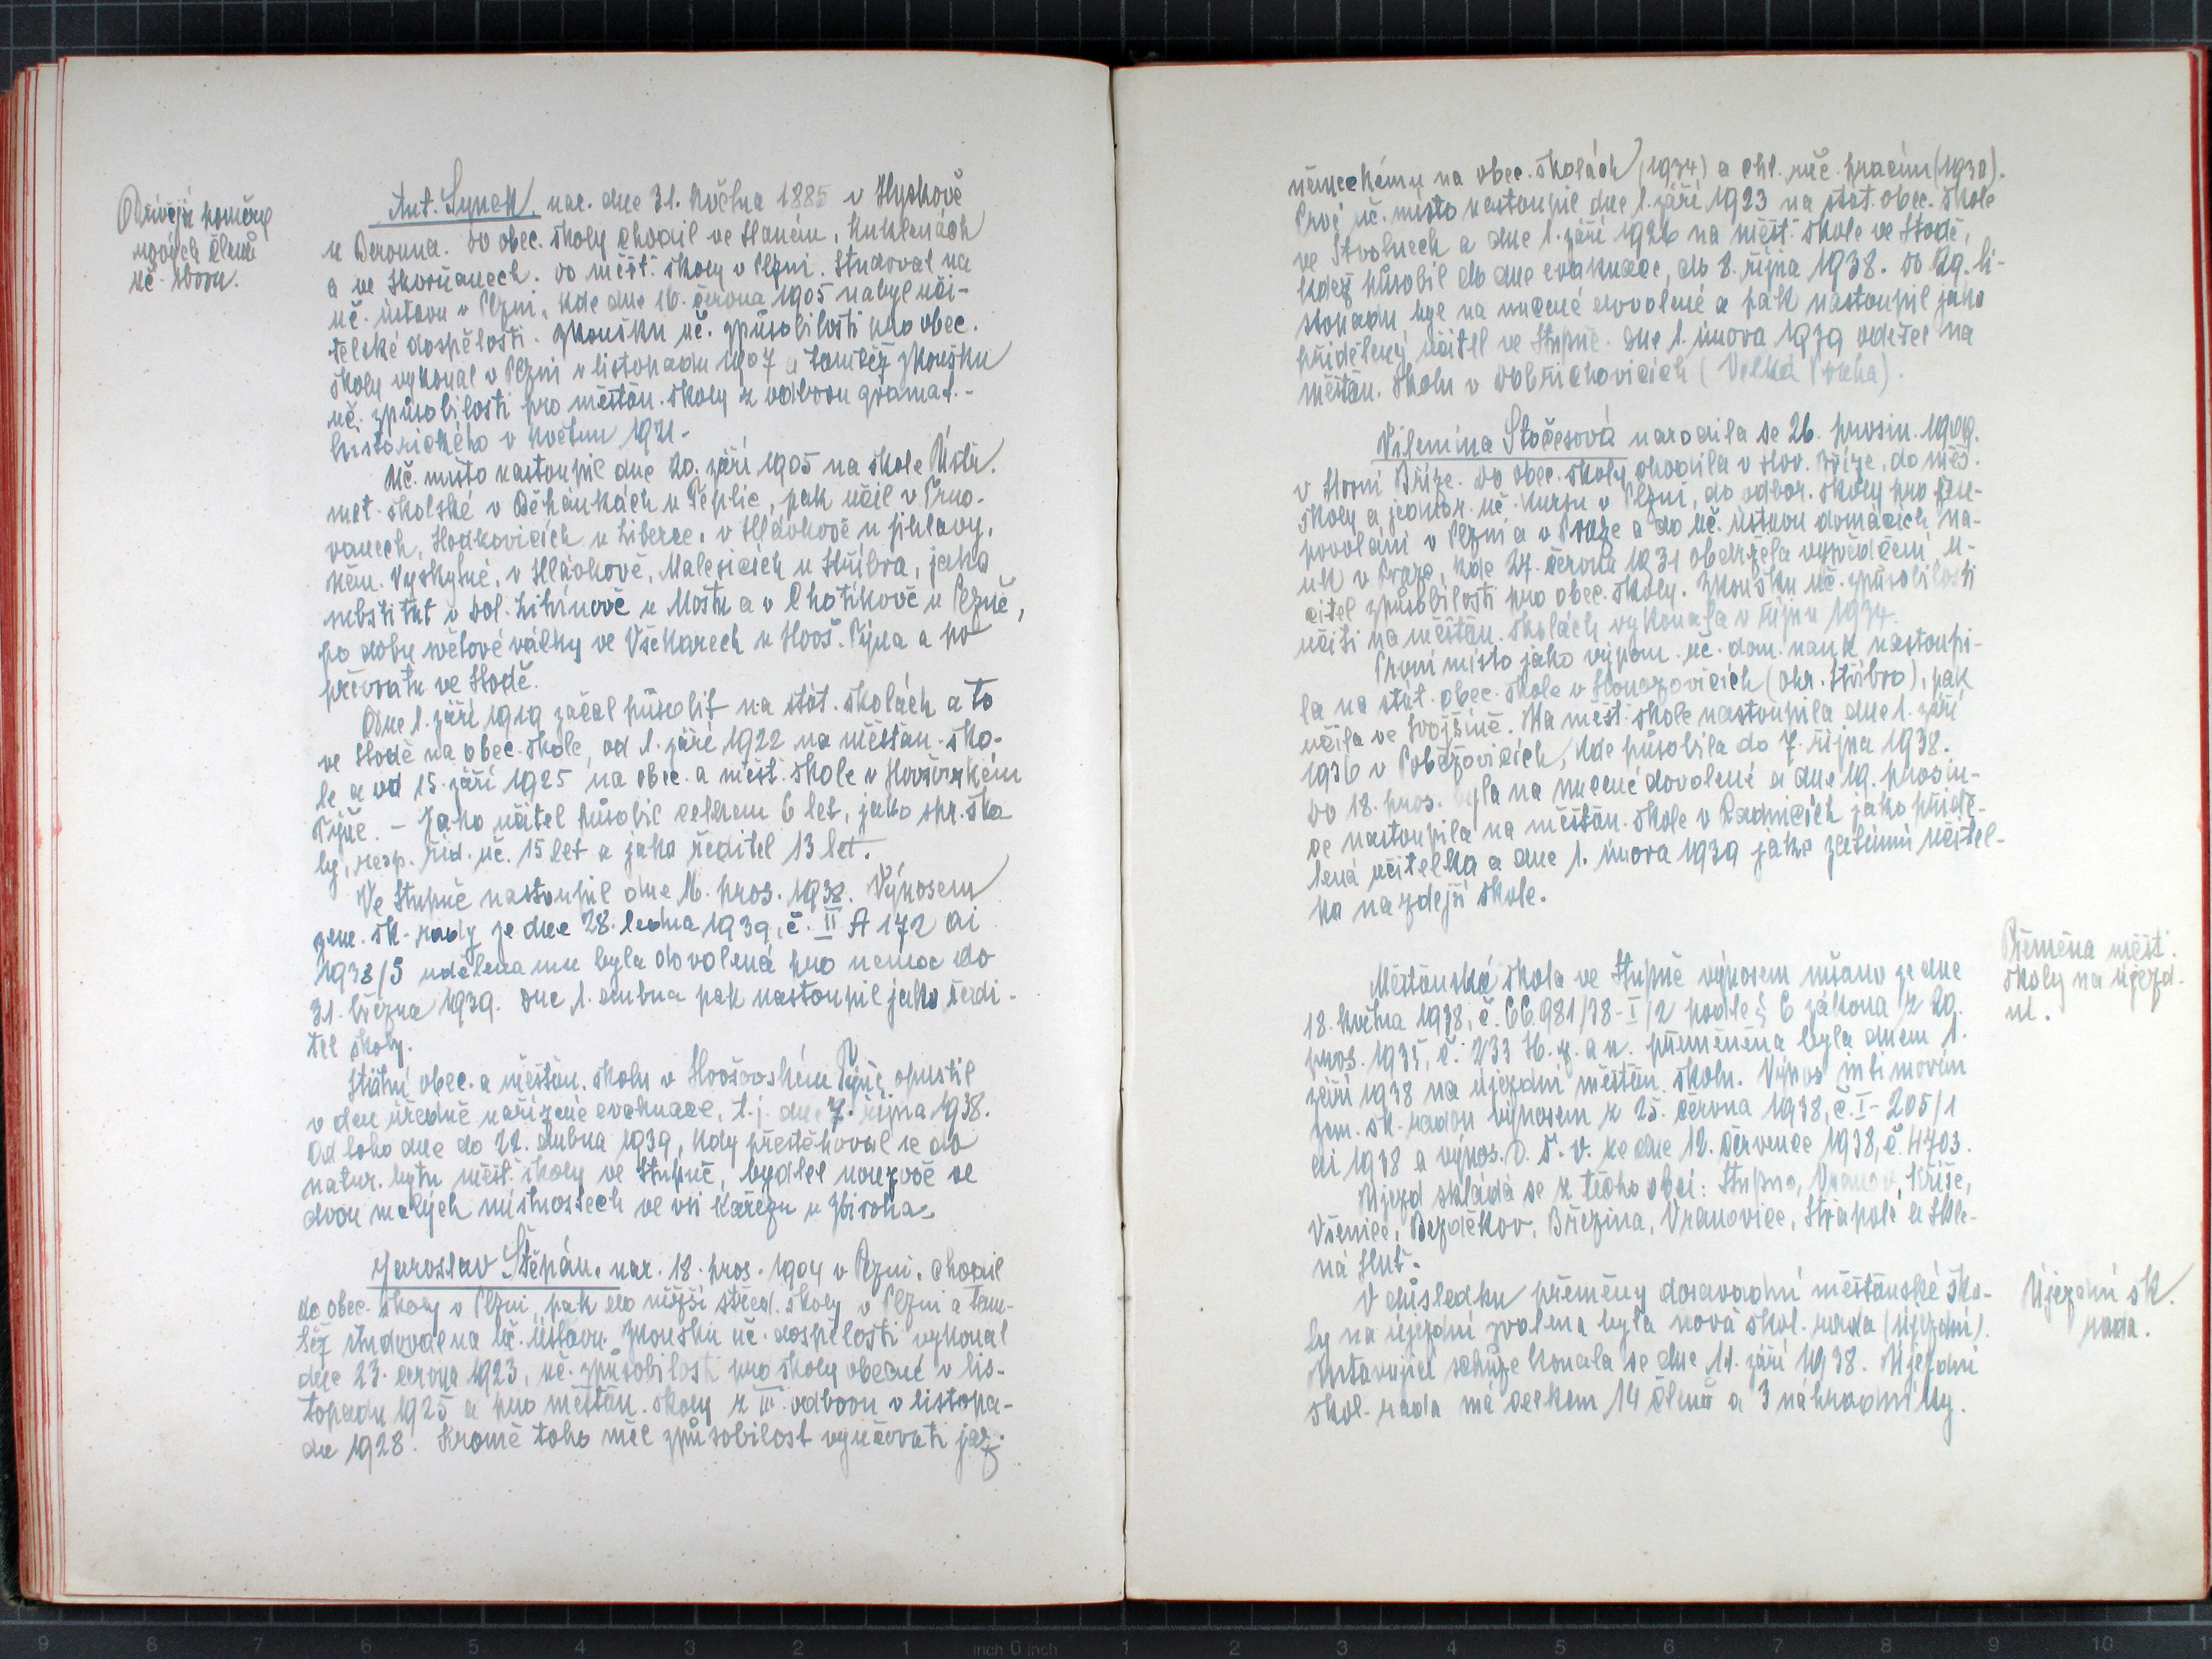 Dřívější poměry
nových členů
uč. sboru.
Ant. Synek, nar. dne 31. května 1885 v Hyskově
u Berouna. Do obec. školy chodil ve Kuklenách
a ve Skvrňanech. Do měšť. školy v Plzni. Studoval na
uč. ústavu v Plzni, kde dne 16. června 1905 nabyl uči-
telské dospělosti. Zkoušku uč. způsobilosti pro obec.
školy vykonal v Plzni v listopadu 1907 a tamtéž zkoušku
uč. způsobilosti pro měšťan. školy z odboru gramat.-
historického v květnu 1921.
Uč. místo nastoupil dne 20. září 1905 na škole Ústř.
mat. školské v Běhánkách u Teplic, pak učil v Trno-
vanech, Hodkovicích u Liberce, v Hlávkově u Jihlavy,
Něm. Vyskytné, v Hlávkově, Malesicích u Stříbra, jako
substitut v Dol. Litvínově u Mostu a v Chotíkově u Plzně,
po dobu světové války ve Všekarech u Horš. Týna a po
převratu ve Stodě.
Dne 1. září 1919 začal působit na stát. školách a to
ve Stodě na obec. škole, od 1. září 1922 na měšťan. ško-
le a od 15. září 1925 na obec. a měšť. škole v Horšovském
Týně. - Jako učitel působil celkem 6 let, jako spr. ško
ly, resp. říd. uč. 15 let a jako ředitel 13 let.
Ve Stupně nastoupil dne 16. pros. 1938. Výnosem
zem. šk. rady ze dne 28. ledna 1939, č. II A 172 ai
1938/5 udělena mu byla dovolená pro nemoc do
31. března 1939. Dne 1. dubna pak nastoupil jako ředi-
tel školy.
Státní obec. a měšťan. školu v Horšovském Týně opustil
v den úředně nařízené evakuace, t. j. dne 7. října 1938.
Od toho dne do 22. dubna 1939, kdy přestěhoval se do
natur. bytu měšť. školy ve Stupně, bydlel nouzově ve
dvou malých místnostech ve vsi Kařezu u Zbiroha.
Jaroslav Štěpán, nar. 18. pros. 1904 v Plzni. Chodil
do obec. školy v Plzni, pak do nižší střed. školy v Plzni a tam-
též studoval na uč. ústavu. Zkoušku uč. dospělosti vykonal
dne 23. června 1923, uč. způsobilosti pro školy obecné v lis-
topadu 1925 a pro měšťan. školy z III. odboru v listopa-
du 1928. Kromě toho měl způsobilost vyučovati jaz.
německému na obec. školách (1934) a chl. ruč. pracím (1938).
Prvé uč. místo nastoupil dne 1. září 1923 na stát. obec. škole
ve Stvolnech a dne 1. září 1926 na měšť. škole ve Stodě,
kdež působil do dne evakuace, do 8. října 1938. Do 29. li-
stopadu byl na nucené dovolené a pak nastoupil jako
přidělený učitel ve Stupně. Dne 1. února 1939 odešel na
měšťan. školu v Dobřichovicích (Velká Praha).
Vilemína Stočesová narodila se 26. prosin. 1909.
v Horní Bříze. Do obec. školy chodila v Hor. Bříze, do měš.
školy a jednor. uč. kursu v Plzni, do odbor. školy pro žen.
povolání v Plzni a v Praze a do uč. ústavu domácích na-
uk v Praze, kde 27. června 1931 obdržela vysvědčení u-
čitel. způsobilosti pro obec. školy. Zkoušku uč. způsobilosti
učiti na měšťan. školách vykonala v říjnu 1934.
První místo jako výpom. uč. dom. nauk nastoupi-
la na stát. obec. škole v Honezovicích (okr. Stříbro), pak
učila ve Svojšíně. Na měšť. škole nastoupila dne 1. září
1936 v Poběžovicích, kde působila do 7. října 1938.
Do 18. pros. byla na nucené dovolené a dne 19. prosin-
ce nastoupila na měšťan. škole v Radnicích jako přidě-
lená učitelka a dne 1. února 1939 jako zatímní učitel-
ka na zdejší škole.
Přeměna měšť.
školy na újezd-
ní.
Měšťanská škola ve Stupně výnosem mšano ze dne
18. května 1938, č. 66.981/38-I/2 podle § 6 zákona z 20.
pros. 1935, č. 233 Sb. z. a n. přeměněna byla dnem 1.
září 1938 na újezdní měšťan. školu. Výnos intimován
zem. šk. radou výnosem z 25. června 1938, č. I-205/1
ai 1938 a výnos. O. š. v. ze dne 12. července 1938, č. 4703.
Újezd skládá se z těchto obcí: Stupno, Vranov, Kříše,
Všenice, Bezděkov, Březina, Vranovice, Střapole a Skle-
ná Huť.
Újezdní šk.
rada.
V důsledku přeměny dosavadní měšťanské ško-
ly na újezdní zvolena byla nová škol. rada (újezdní).
Ustavující schůze konala se dne 11. září 1938. Újezdní
škol. rada má celkem 14 členů a 3 náhradníky.